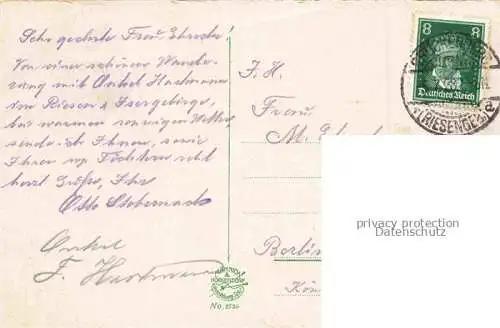 Sehr geehrte Frau
Von einer schönen Wande-
rung mit Onkel Hartmann
im Riesen & Isergebirge,
bei warmem sonnigen Wetter
sende ich Ihnen, sowie
Ihren Töchtern recht
herzl. Grüße, Ihr
Otto
Onkel
F. Hartmann
F. H.
Frau
M.
Berlin
8 8
Deutsches Reich
(RIESENGEB.) a
No. 2526
privacy protection
Datenschutz